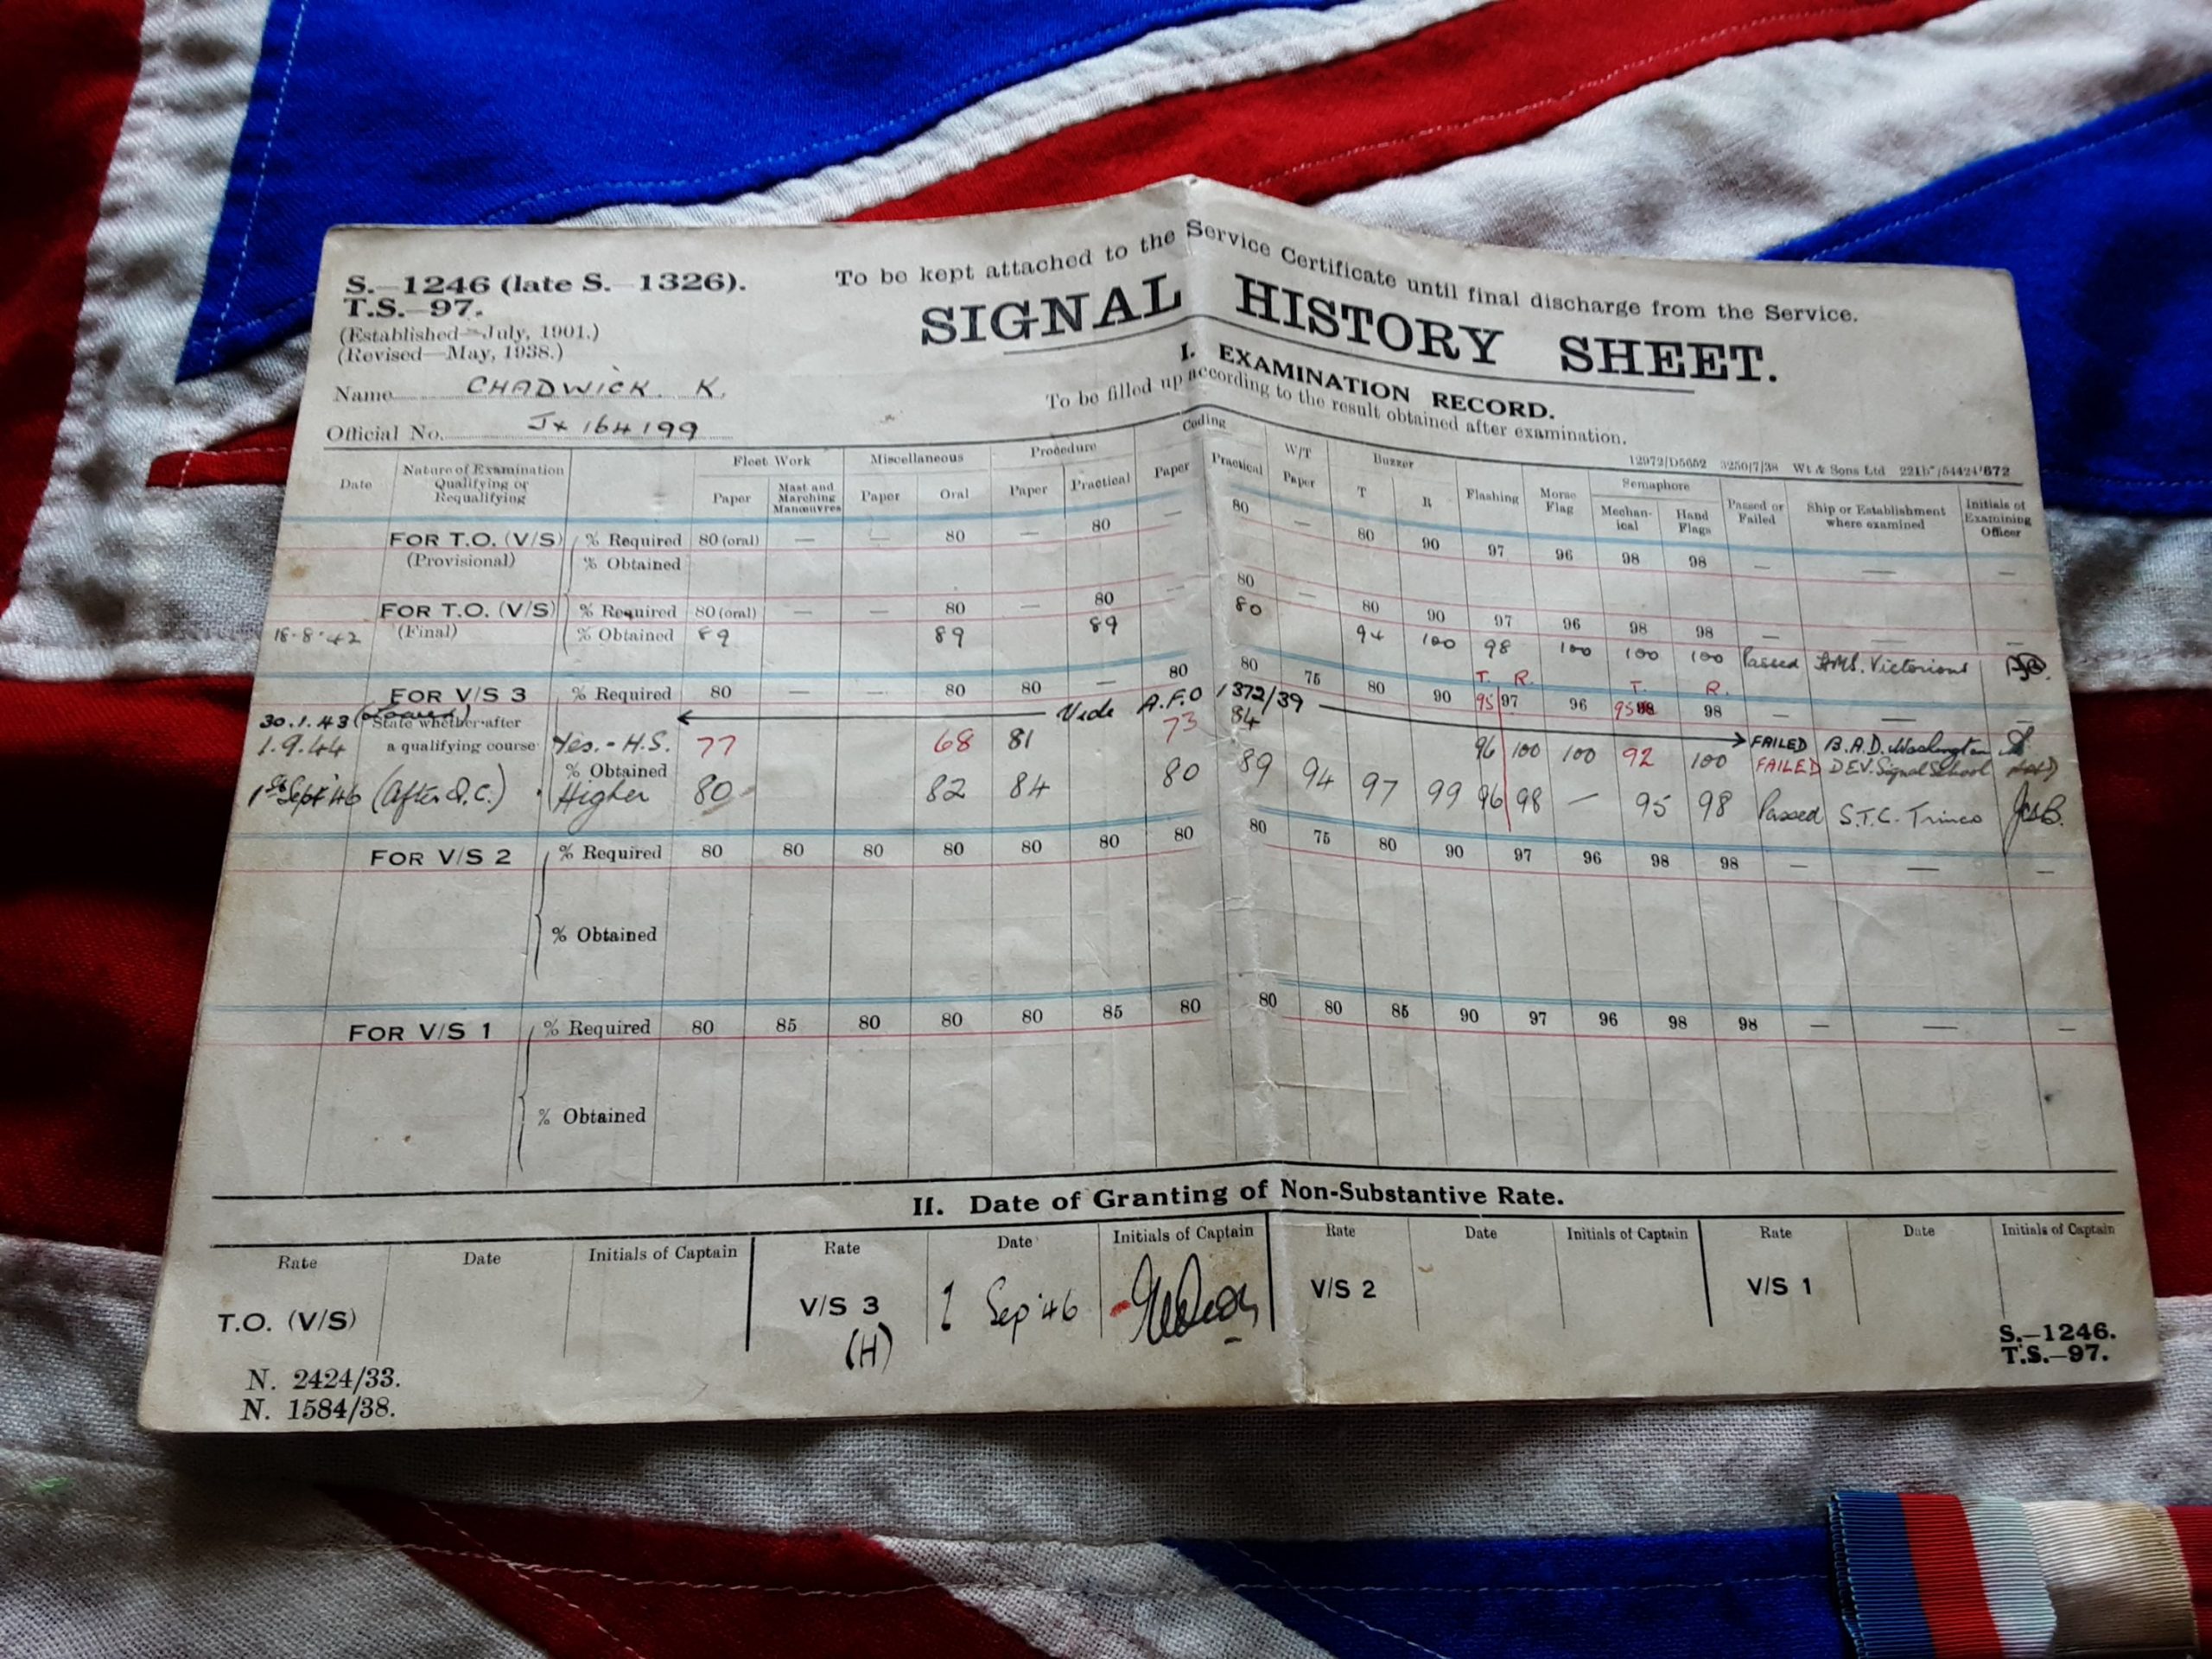 S.—1246 (late S.—1326).
T.S.—97.
(Established—July, 1901.)
(Revised—May, 1938.)
To be kept attached to the Service Certificate until final discharge from the Service.
SIGNAL HISTORY SHEET.
I. EXAMINATION RECORD.
To be filled up according to the result obtained after examination.
Name CHADWICK. K.
Official No. JX 164199
12972/D5652 3250/7/38 Wt & Sons Ltd 221B"/54424/672
Date Nature of Examination Qualifying or Requalifying Fleet Work Miscellaneous Procedure Coding W/T Buzzer Flashing Morse Flag Semaphore Passed or Failed Ship or Establishment where examined Initials of Examining Officer
Paper Mast and Marching Manœuvres Paper Oral Paper Practical Paper Practical Paper T R Mechanical Hand Flags
FOR T.O. (V/S) % Required 80 (oral) — — 80 — 80 — 80 — 80 90 97 96 98 98 — — —
(Provisional) % Obtained
FOR T.O. (V/S) % Required 80 (oral) — — 80 — 80 — 80 — 80 90 97 96 98 98 — — —
18-8-42 (Final) % Obtained 89 89 89 80 94 100 98 100 100 100 Passed H.M.S. Victorious
T. R. T. R.
FOR V/S 3 % Required 80 — — 80 80 — 80 80 75 80 90 95 97 96 95 98 98 — — —
30.1.43 (State whether after Vide A.F.O 1372/39 FAILED B.A.D. Washington
1.9.44 a qualifying course Yes.-H.S. 77 68 81 73 84 96 100 100 92 100 FAILED DEV. Signal School
% Obtained
1st Sept 46 (After Q.C.) Higher 80 82 84 80 89 94 97 99 96 98 — 95 98 Passed S.T.C. Trinco JCSB.
FOR V/S 2 % Required 80 80 80 80 80 80 80 80 75 80 90 97 96 98 98 — — —
% Obtained
FOR V/S 1 % Required 80 85 80 80 80 85 80 80 80 85 90 97 96 98 98 — — —
% Obtained
II. Date of Granting of Non-Substantive Rate.
Rate Date Initials of Captain Rate Date Initials of Captain Rate Date Initials of Captain Rate Date Initials of Captain
T.O. (V/S) V/S 3 1 Sep '46 V/S 2 V/S 1
(H)
N. 2424/33.
N. 1584/38.
S.—1246.
T.S.—97.